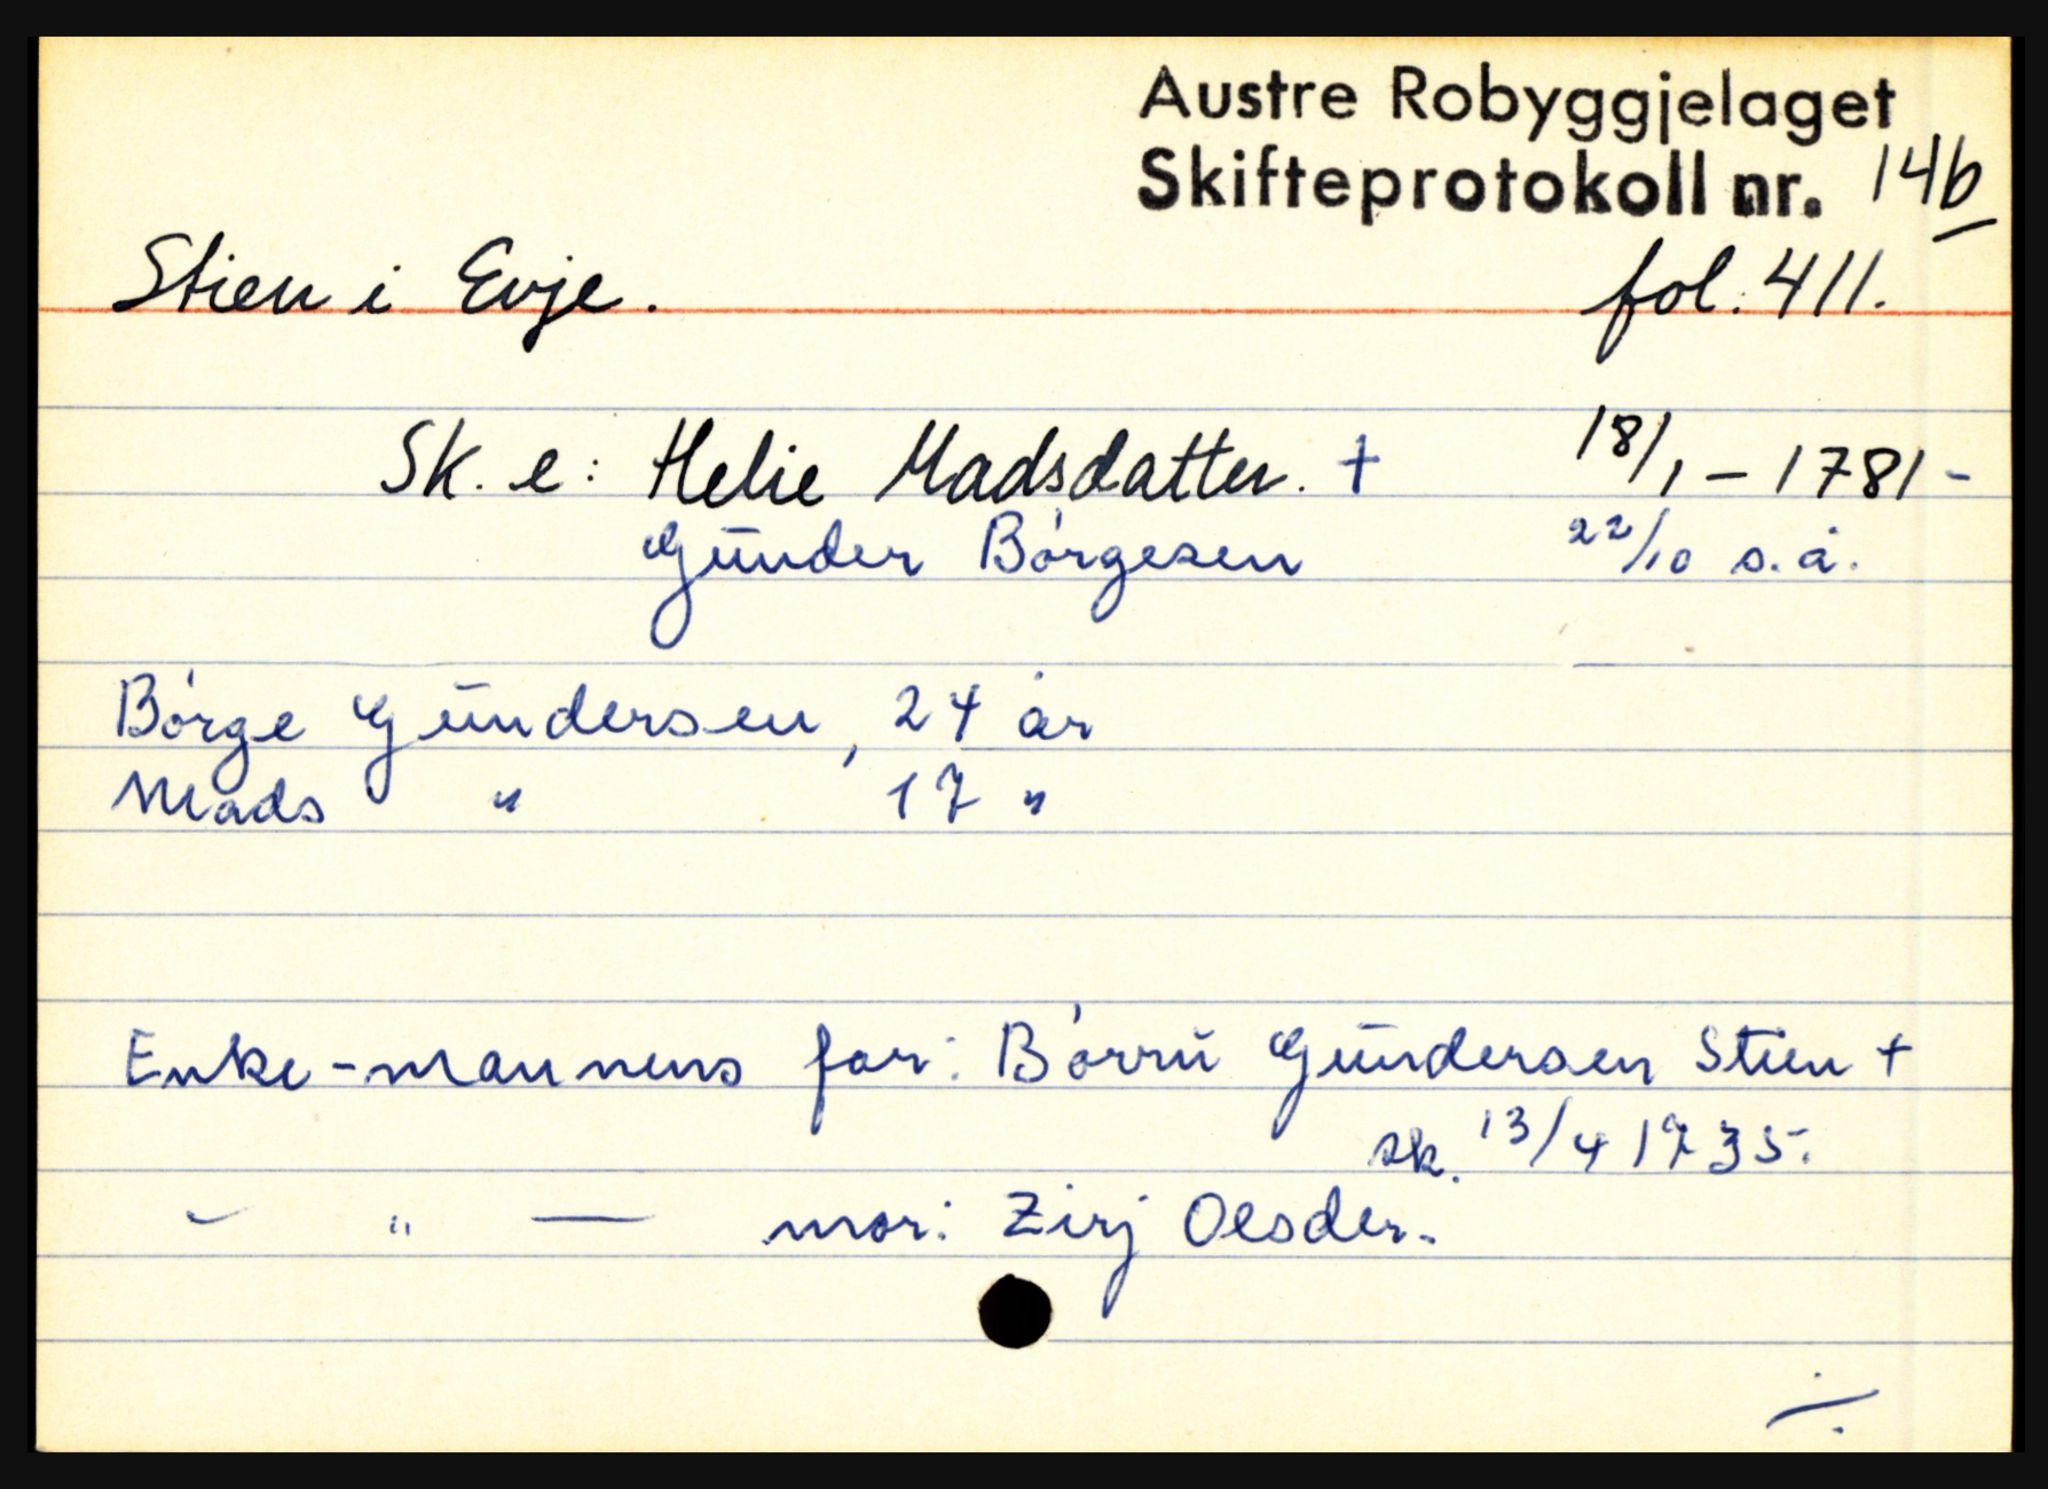 Austre Robyggjelaget
Skifteprotokoll nr. 14b
Stien i Evje. fol. 411.
Sk. e: Helie Madsdatter. + 18/1 – 1781 -
Gŭnder Børgesen 22/10 s.å.
Børge Gŭndersen, 24 år
Mads " 17 "
Enke-mannens far: Børrŭ Gŭndersen Stien +
sk. 13/4 1735.
- " — mor: Zirj Olsder.